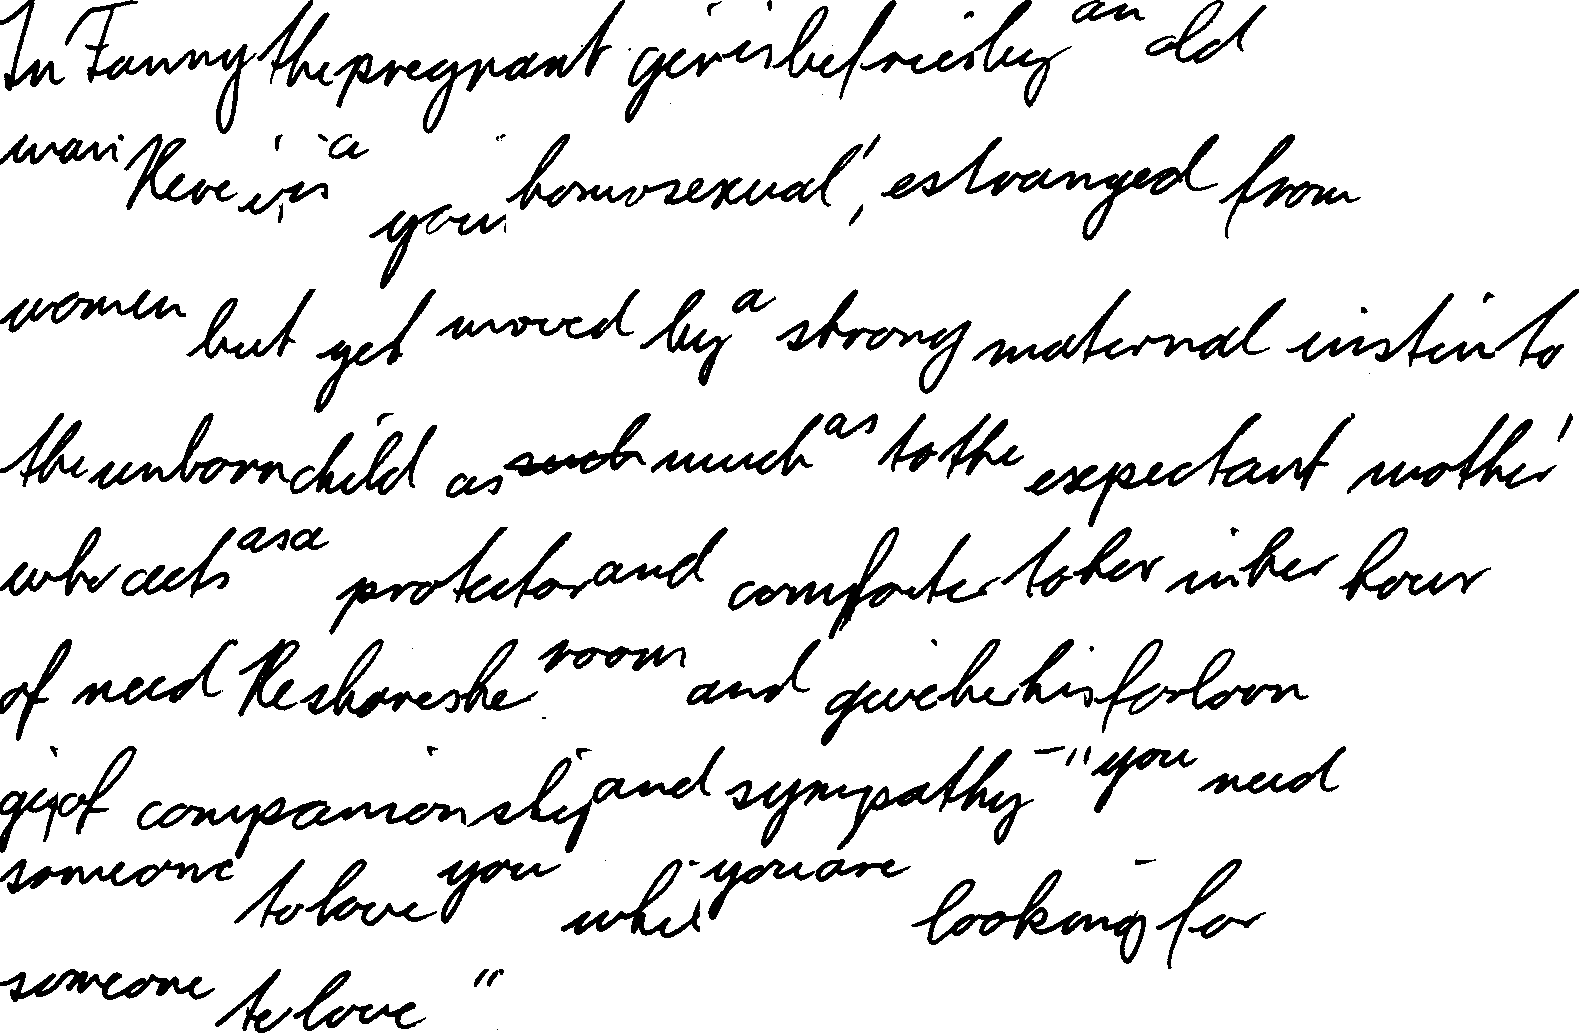 In Fanny the pregnant girl is befries by an old
man Here is a young homosexual', estranged from
women but yet moved by a strong maternal instin to
the unborn child as such much as to the expectant mother
who acts as a protector and comforter to her in her hour
of need He shares he room and give her his forlorn
gif of companionship and sympathy - "you need
someone to love you while you are looking for
someone to love"